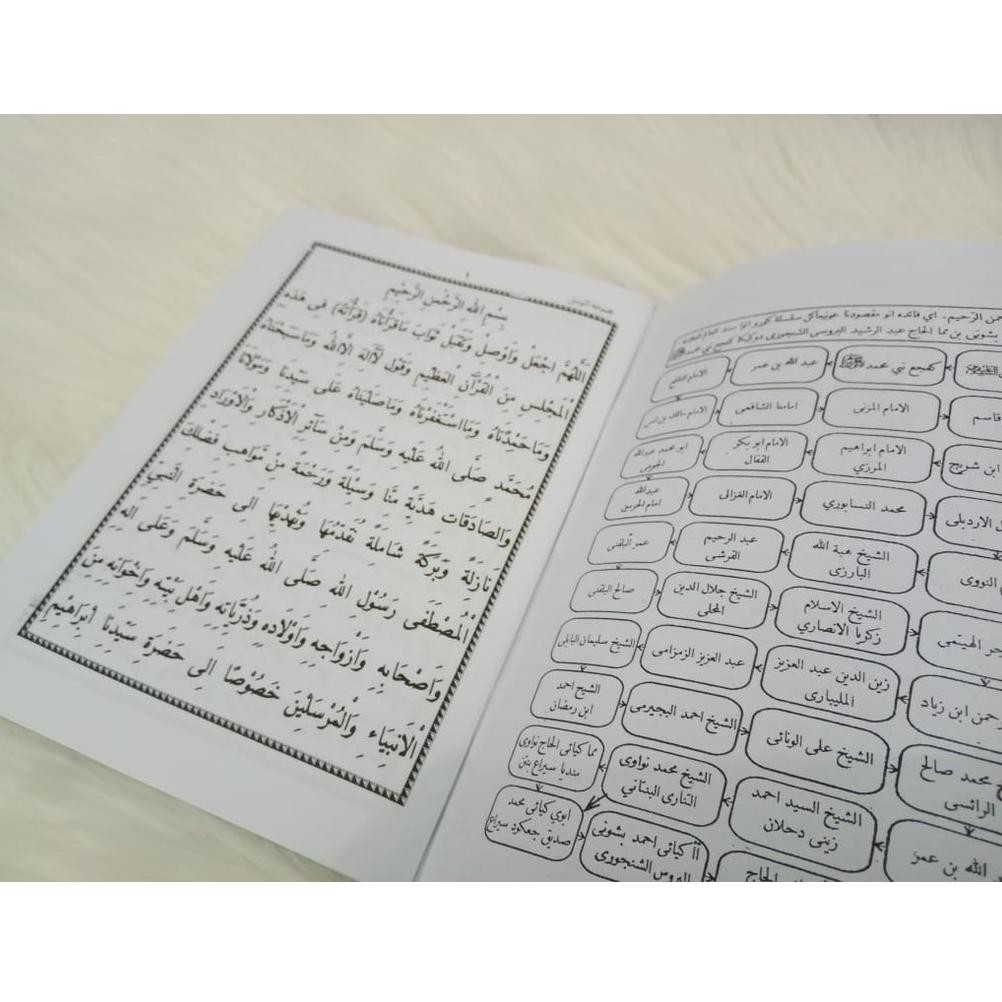 ١
بِسْمِ اللهِ الرَّحْمٰنِ الرَّحِيْمِ
اَللّٰهُمَّ اجْعَلْ وَاَوْصِلْ وَتَقَبَّلْ ثَوَابَ مَاقَرَأْنَاهُ (قَرَأْتُهُ) فِى هَذِهِ
الْمَجْلِسِ مِنَ الْقُرْآنِ الْعَظِيْمِ وَقَوْلِ لَآاِلَهَ اِلَّااللهُ وَمَاسَبَّحْنَاهُ
وَمَاحَمِدْنَاهُ وَمَااسْتَغْفَرْنَاهُ وَمَاصَلَّيْنَاهُ عَلَى سَيِّدِنَا وَمَوْلَانَا
مُحَمَّدٍ صَلَّى اللهُ عَلَيْهِ وَسَلَّمَ وَمِنْ سَآئِرِ الْاَذْكَارِ وَالْاَوْرَادِ
وَالصَّادَقَاتِ هَدِيَّةً مِنَّا وَسِيْلَةً وَرَحْمَةً مِنْ مَوَاهِبِ فَضْلِكَ
نَازِلَةً وَبَرَكَةً شَامِلَةً نُقَدِّمُهَا وَنُهْدِيْهَا اِلَى حَضْرَةِ النَّبِيِّ
الْمُصْطَفَى رَسُوْلِ اللهِ صَلَّى اللهُ عَلَيْهِ وَسَلَّمَ وَعَلَى اَلِهِ
وَاَصْحَابِهِ وَاَزْوَاجِهِ وَاَوْلَادِهِ وَذُرِّيَّاتِهِ وَاَهْلِ بَيْتِهِ وَاِخْوَانِهِ مِنَ
الْاَنْبِيَاءِ وَالْمُرْسَلِيْنَ خُصُوْصًا اِلَى حَضْرَةِ سَيِّدِنَا اِبْرَاهِيْمِ
الرّحيم. اي فائده
بن مما الحاج عبد الرشيد البروسى الشنجورى
كنجع نبي محمد ﷺ
عبد الله بن عمر
الامام النافع
قاسم
الامام المزنى
امامنا الشافعى
الامام مالك بن انس
ابن شريج
الامام ابراهيم المرزي
الامام ابو بكر القفال
ابو محمد عبدالله الجوينى
الاردبلى
محمد النسابوري
الامام الغزالى
عبدالله امام الحرمين
النووى
الشيخ هبة الله البارزى
عبد الرحيم القرشى
عمر البلقنى
الهيتمى
الشيخ الاسلام زكريا الانصاري
الشيخ جلال الدين المحلى
صالح البلقنى
ابن زياد
زين الدين عبد العزيز المليبارى
عبد العزيز الزمزامى
الشيخ سليمان البابلى
محمد صالح الرائسى
الشيخ على الونائى
الشيخ احمد البجيرمى
الشيخ احمد ابن رمضانى
الله بن عمر
الشيخ السيد احمد زينى دحلان
الشيخ محمد نواوى التنارى البنتاني
مما كيائى الحاج نواوى منديا سيراغ بنتن
الحاج
كيائى احمد بشونى البروس الشنجورى
ابوي كيائي محمد صديق جمكوه سيراغ